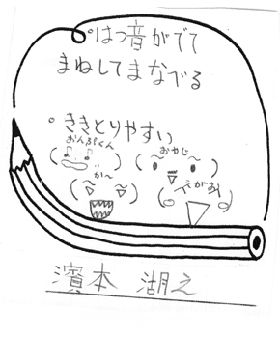 はつ音がでて
まねしてまなべる
ききとりやすい
おんぷくん
おやじ
か〜
濱本 湖之